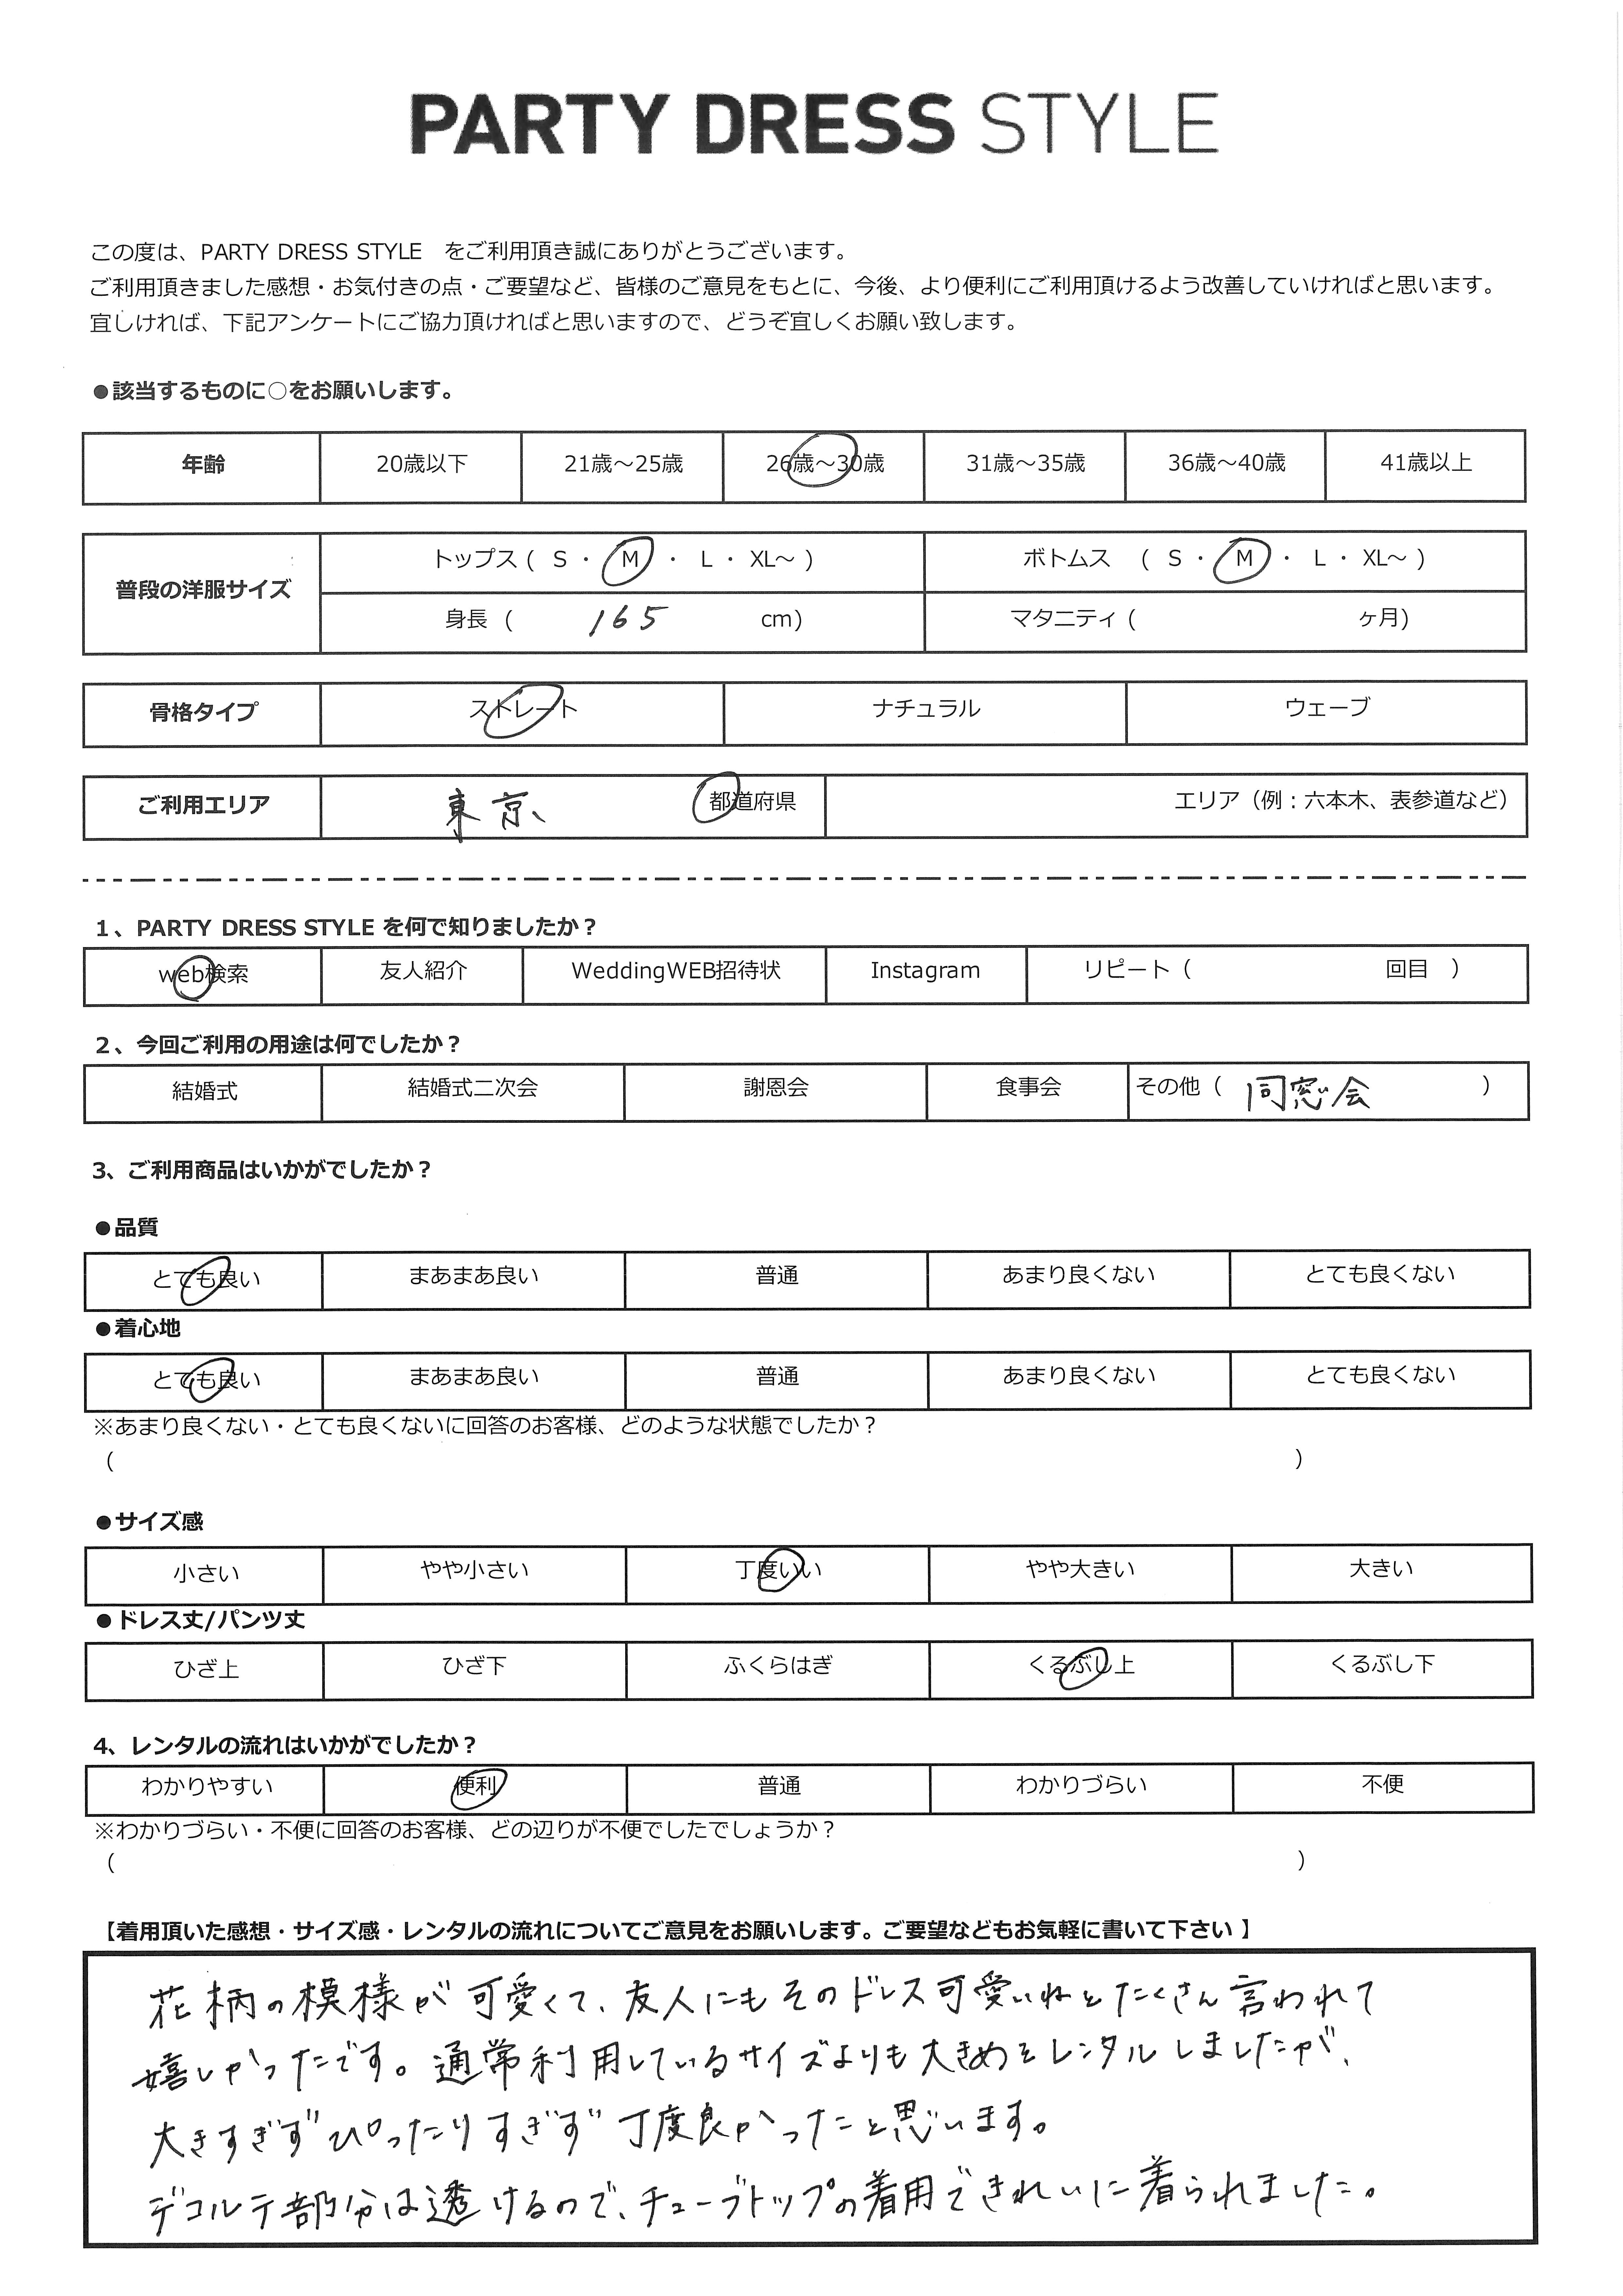 PARTY DRESS STYLE
この度は、PARTY DRESS STYLE をご利用頂き誠にありがとうございます。
ご利用頂きました感想・お気付きの点・ご要望など、皆様のご意見をもとに、今後、より便利にご利用頂けるよう改善していければと思います。
宜しければ、下記アンケートにご協力頂ければと思いますので、どうぞ宜しくお願い致します。
●該当するものに○をお願いします。
年齢 20歳以下 21歳～25歳 26歳～30歳 31歳～35歳 36歳～40歳 41歳以上
普段の洋服サイズ トップス ( S ・ M ・ L ・ XL～ ) ボトムス ( S ・ M ・ L ・ XL～ )
身長 ( 165 cm) マタニティ ( ヶ月)
骨格タイプ ストレート ナチュラル ウェーブ
ご利用エリア 東京、 都道府県 エリア（例：六本木、表参道など）
1、PARTY DRESS STYLE を何で知りましたか？
web検索 友人紹介 WeddingWEB招待状 Instagram リピート（ 回目 ）
2、今回ご利用の用途は何でしたか？
結婚式 結婚式二次会 謝恩会 食事会 その他（ 同窓会 ）
3、ご利用商品はいかがでしたか？
●品質
とても良い まあまあ良い 普通 あまり良くない とても良くない
●着心地
とても良い まあまあ良い 普通 あまり良くない とても良くない
※あまり良くない・とても良くないに回答のお客様、どのような状態でしたか？
（ ）
●サイズ感
小さい やや小さい 丁度いい やや大きい 大きい
●ドレス丈/パンツ丈
ひざ上 ひざ下 ふくらはぎ くるぶし上 くるぶし下
4、レンタルの流れはいかがでしたか？
わかりやすい 便利 普通 わかりづらい 不便
※わかりづらい・不便に回答のお客様、どの辺りが不便でしたでしょうか？
（ ）
【着用頂いた感想・サイズ感・レンタルの流れについてご意見をお願いします。ご要望などもお気軽に書いて下さい 】
花柄の模様が可愛くて、友人にもそのドレス可愛いねとたくさん言われて
嬉しかったです。通常利用しているサイズよりも大きめをレンタルしましたが、
大きすぎずぴったりすぎず丁度良かったと思います。
デコルテ部分は透けるので、チューブトップの着用できれいに着られました。